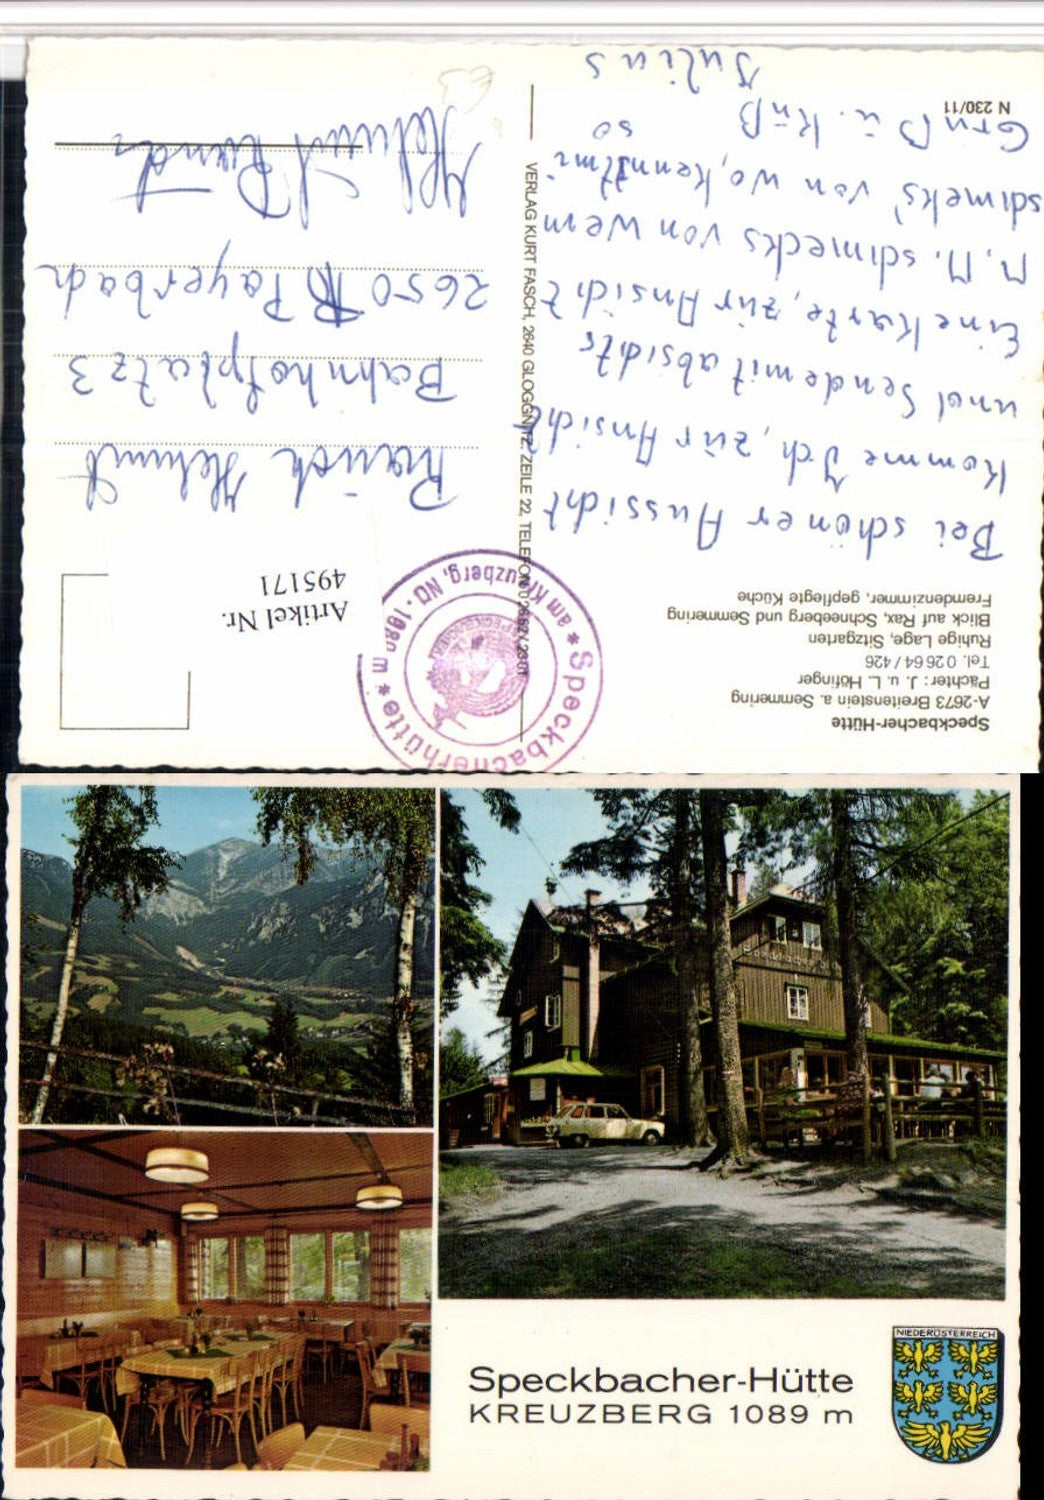 Speckbacher-Hütte
A-2673 Breitenstein a. Semmering
Pächter: J. u. L. Höfinger
Tel. 0 26 64 / 426
Ruhige Lage, Sitzgarten
Blick auf Rax, Schneeberg und Semmering
Fremdenzimmer, gepflegte Küche
Bei schöner Aussicht
Komme Ich, zur Ansicht
und Sende mit absicht
Eine Karte, zür Ansicht
M. M. schmecks von wem
schmeks von wo, kennst mi
so
Gruß ü. Küß
Julius
N 230/11
VERLAG KURT FASCH, 2640 GLOGGNITZ, ZEILE 22, TELEFON 0 26 62 / 23 01
* Speckbacherhütte * am Kreuzberg, NÖ · 1089 m
Artikel Nr.
495171
Helmut
Bahnhofplatz 3
2650 Payerbach
Helmut
NIEDERÖSTERREICH
Speckbacher-Hütte
KREUZBERG 1089 m